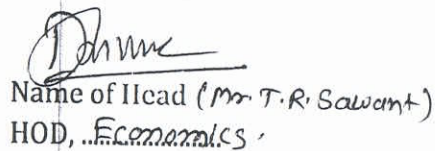 Name of Head (Mr. T.R. Sawant)
HOD, Economics.